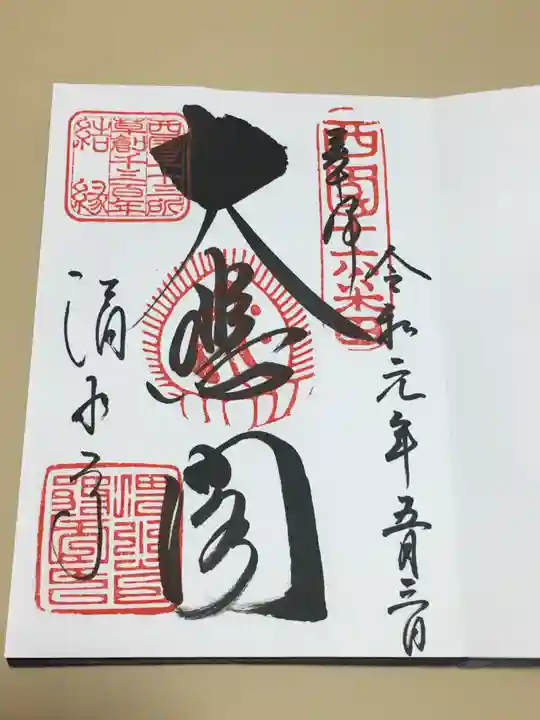 奉拝
西国十六番
令和元年五月三日
大悲閣
清水寺
西国三十三所
草創千三百年
結縁